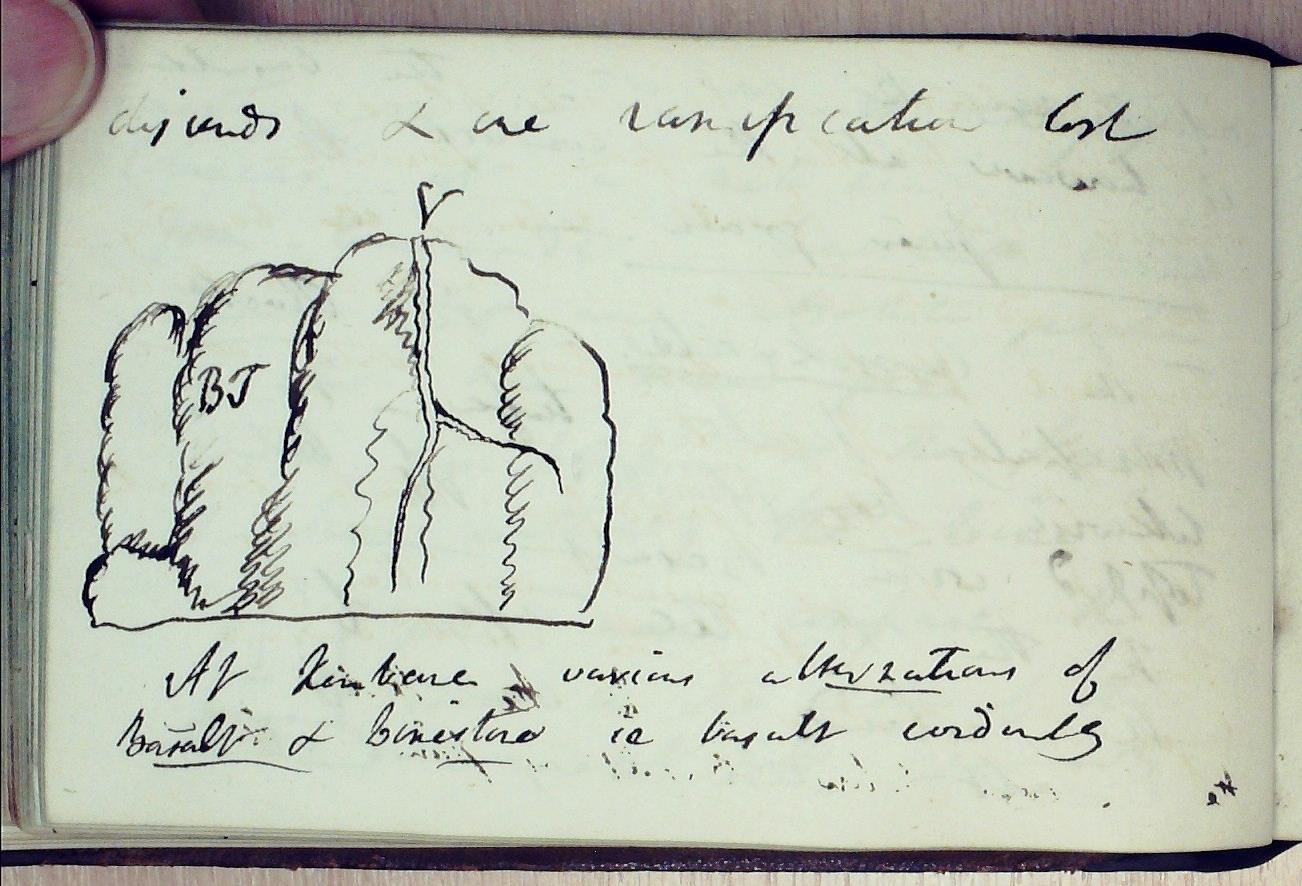 & are ramification lost
V
BT
At various alternations of
Basalt & limestone ie basalt evidently